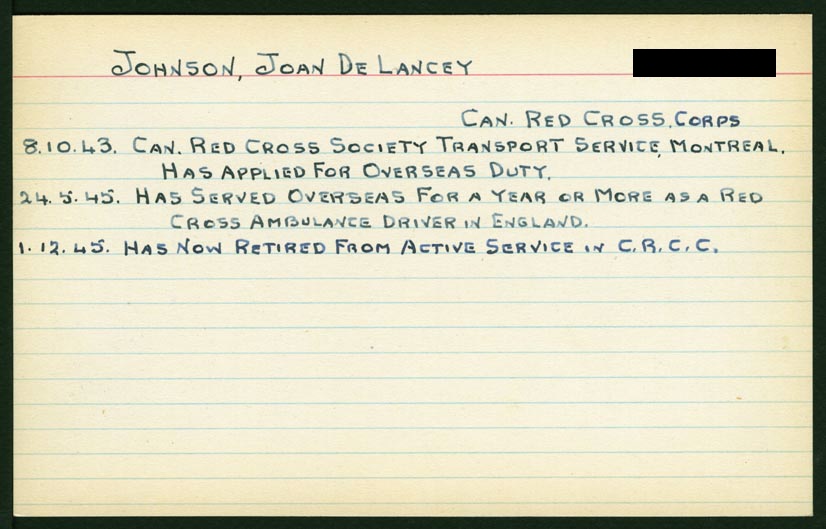 JOHNSON, JOAN DE LANCEY
CAN. RED CROSS. CORPS
8.10.43. CAN. RED CROSS SOCIETY TRANSPORT SERVICE, MONTREAL.
HAS APPLIED FOR OVERSEAS DUTY.
24.5.45. HAS SERVED OVERSEAS FOR A YEAR OR MORE AS A RED
CROSS AMBULANCE DRIVER IN ENGLAND.
1.12.45. HAS NOW RETIRED FROM ACTIVE SERVICE IN C.R.C.C.